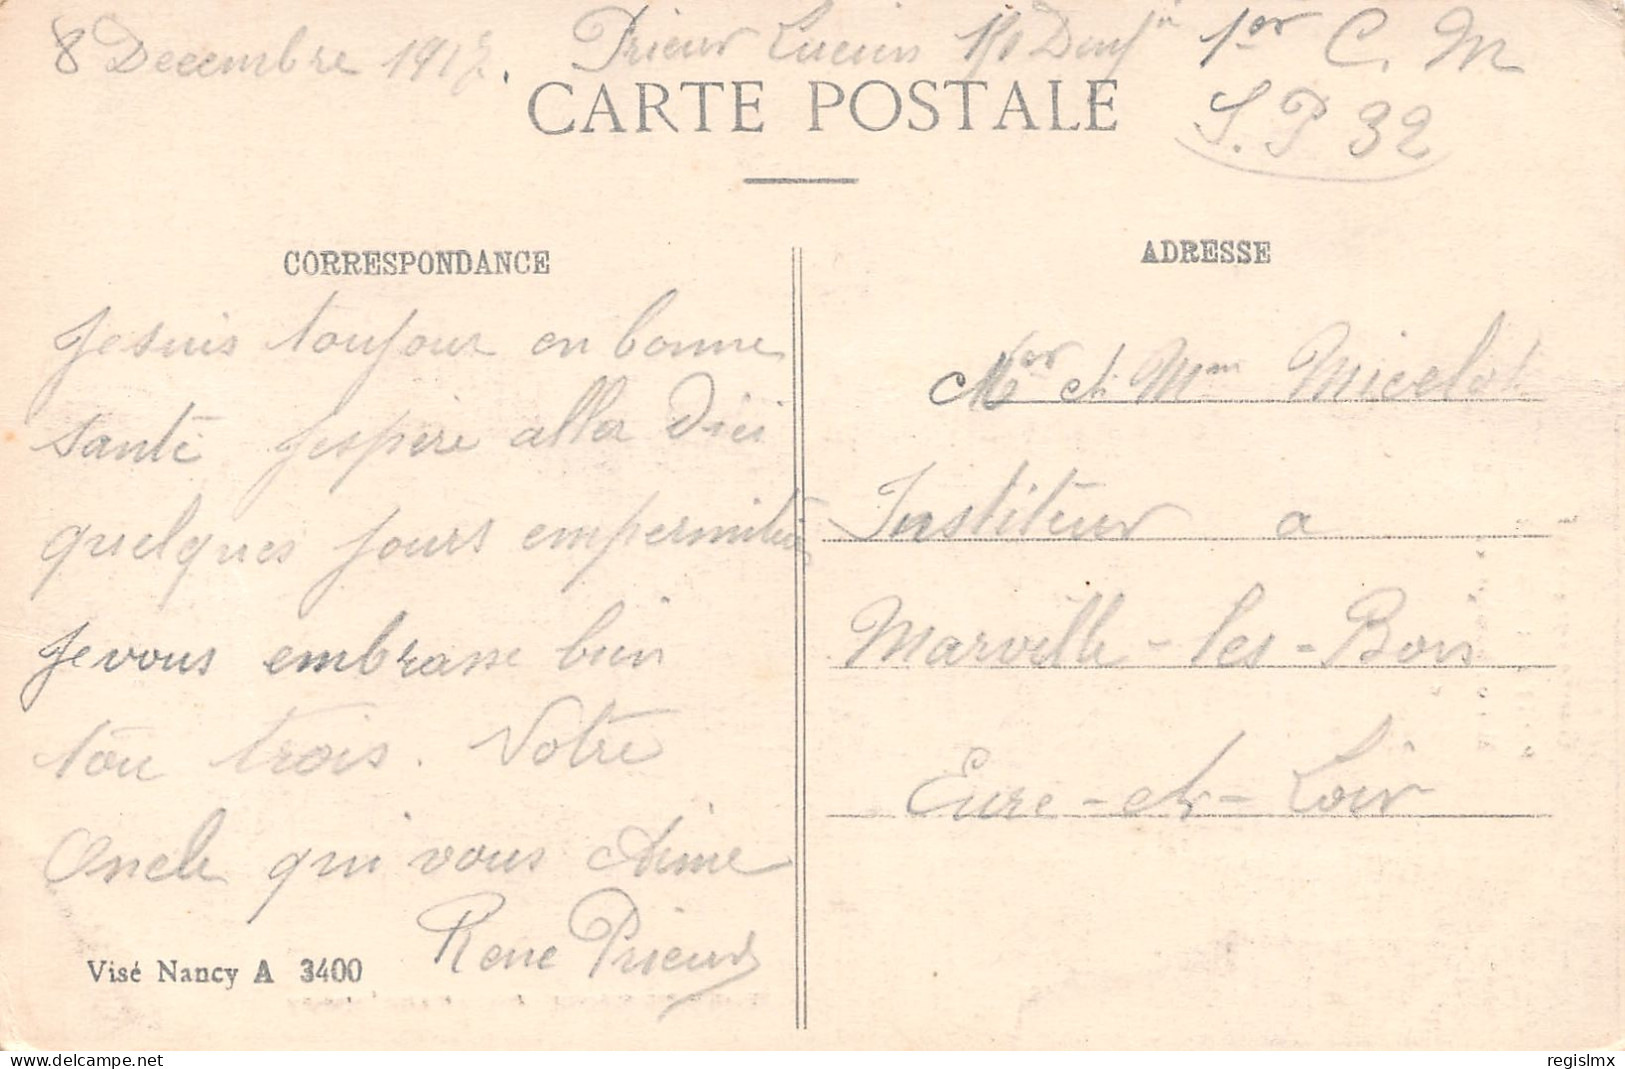 8 Decembre 1917. Prieur Lucien 1er C. M
S. P 32
CARTE POSTALE
CORRESPONDANCE
Je suis toujour en bonne
santé Jespère aller Dici
quelques jours empermition
Je vous embrasse bien
tou trois. Votre
Oncle qui vous Aime
Rene Prieur
Visé Nancy A 3400
ADRESSE
Mr et Mm Micelot
Institeur a
Marville-les-Bois
Eure-et-Loir
regislmx
delcampe.net